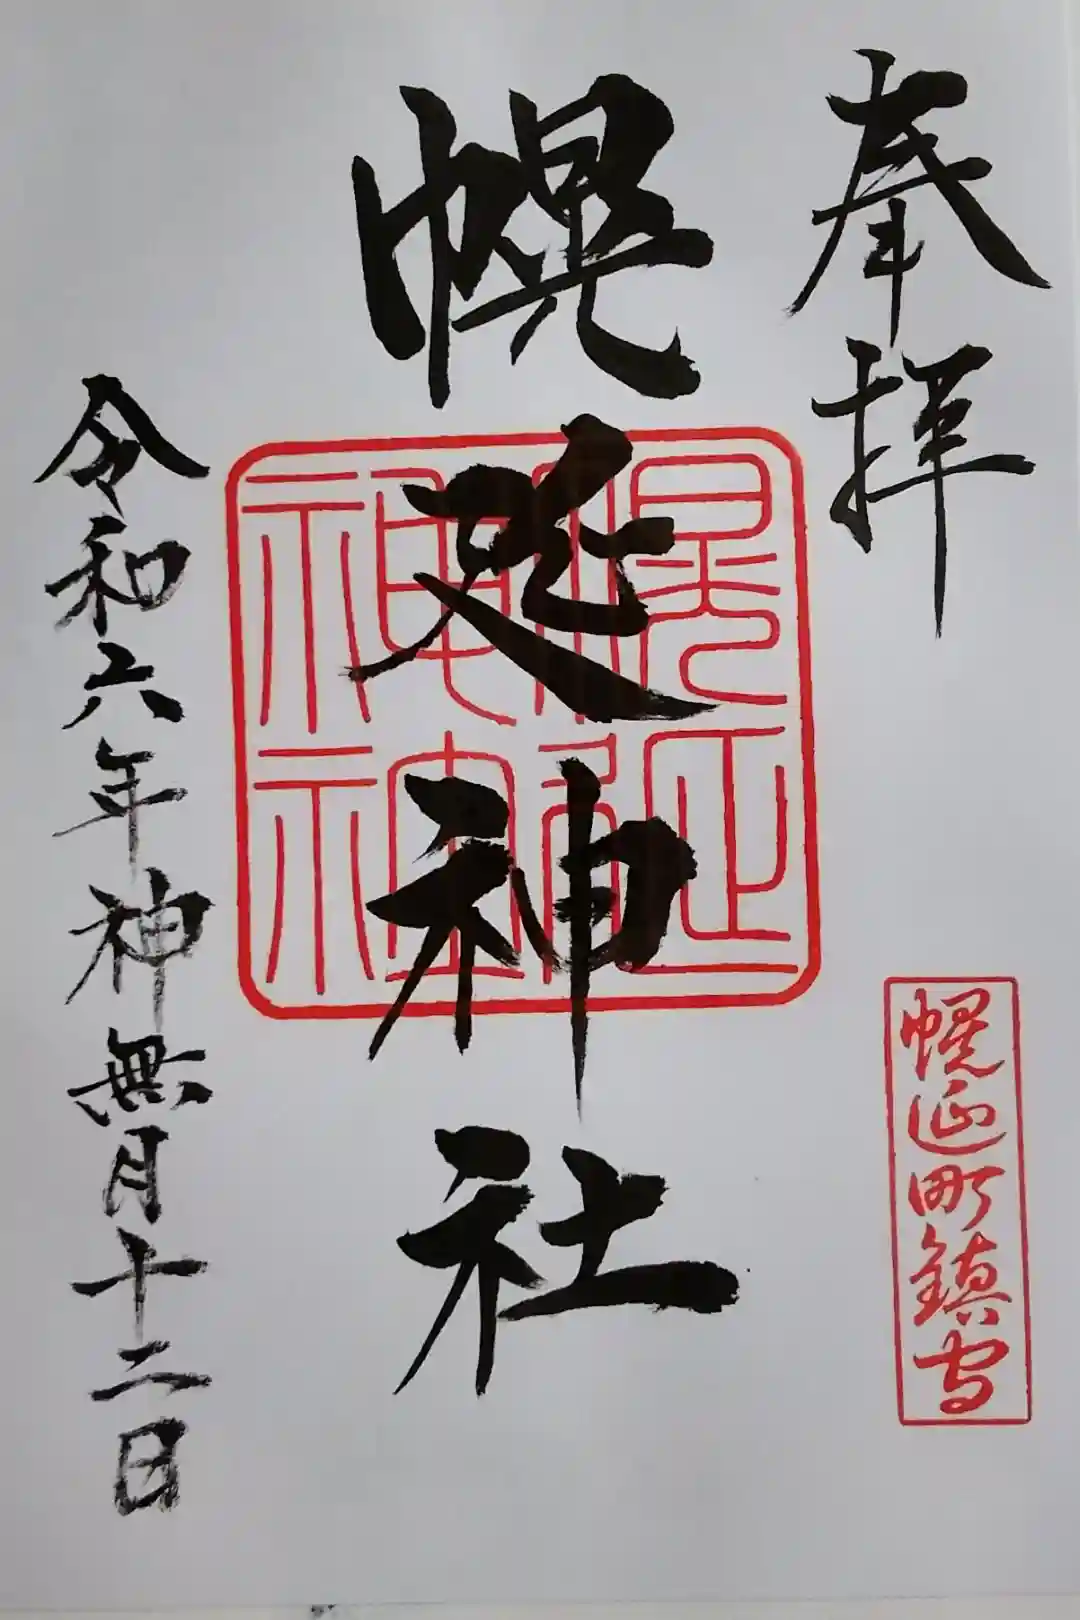 奉拝
幌延町鎮守
幌延神社
幌延神社
令和六年神無月十二日